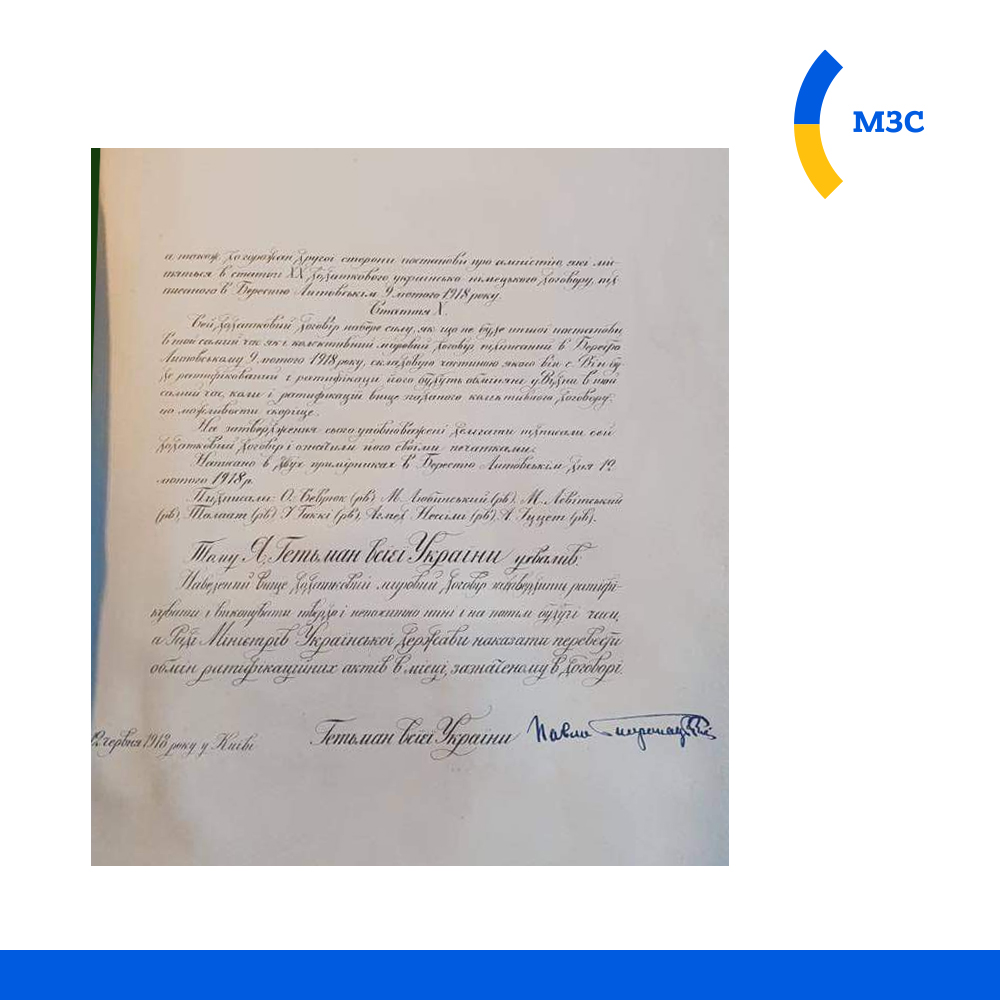 МЗС
а також до горожан другої сторони постанови про амністію, які мі-
тяться в статті XX додаткового українсько німецького договору, під-
писаного в Берестю Литовськім 9 лютого 1918 року.
Стаття X.
Сей додатковий договір набере силу, як що не буде иншої постанови,
в той самий час як і колективний мировий договір, підписаний в Берестю
Литовському 9 лютого 1918 року, складовую частиною якого він є. Він бу-
де ратифікований і ратифікації його будуть обміняні у Відні в той
самий час, коли і ратифікацій вище згаданого договору,
по можливости скорше.
На затвердження сього уповноважені делегати підписали сей
додатковий договір і означили його своїми печатками.
Написано в двух примірниках в Берестю Литовськім дня 12
лютого 1918 р.
Підписали: О. Севрюк (рв), М. Любинський (рв), М. Левітський
(рв), Талаат (рв), І. Гаккі (рв), Агмед Нессімі (рв), А. Іццет (рв).
Тому Я, Гетьман всієї України ухвалив:
Наведений вище додатковий мировий договір ратифі-
кувати і виконувати твердо і нині і на потім будучі часи,
а Раді Міністрів Української Держави наказати перевести
обмін ратифікаційних актів в місці, зазначеному в договорі.
12 червня 1918 року у Київі
Гетьман всієї України Павло Скоропадський